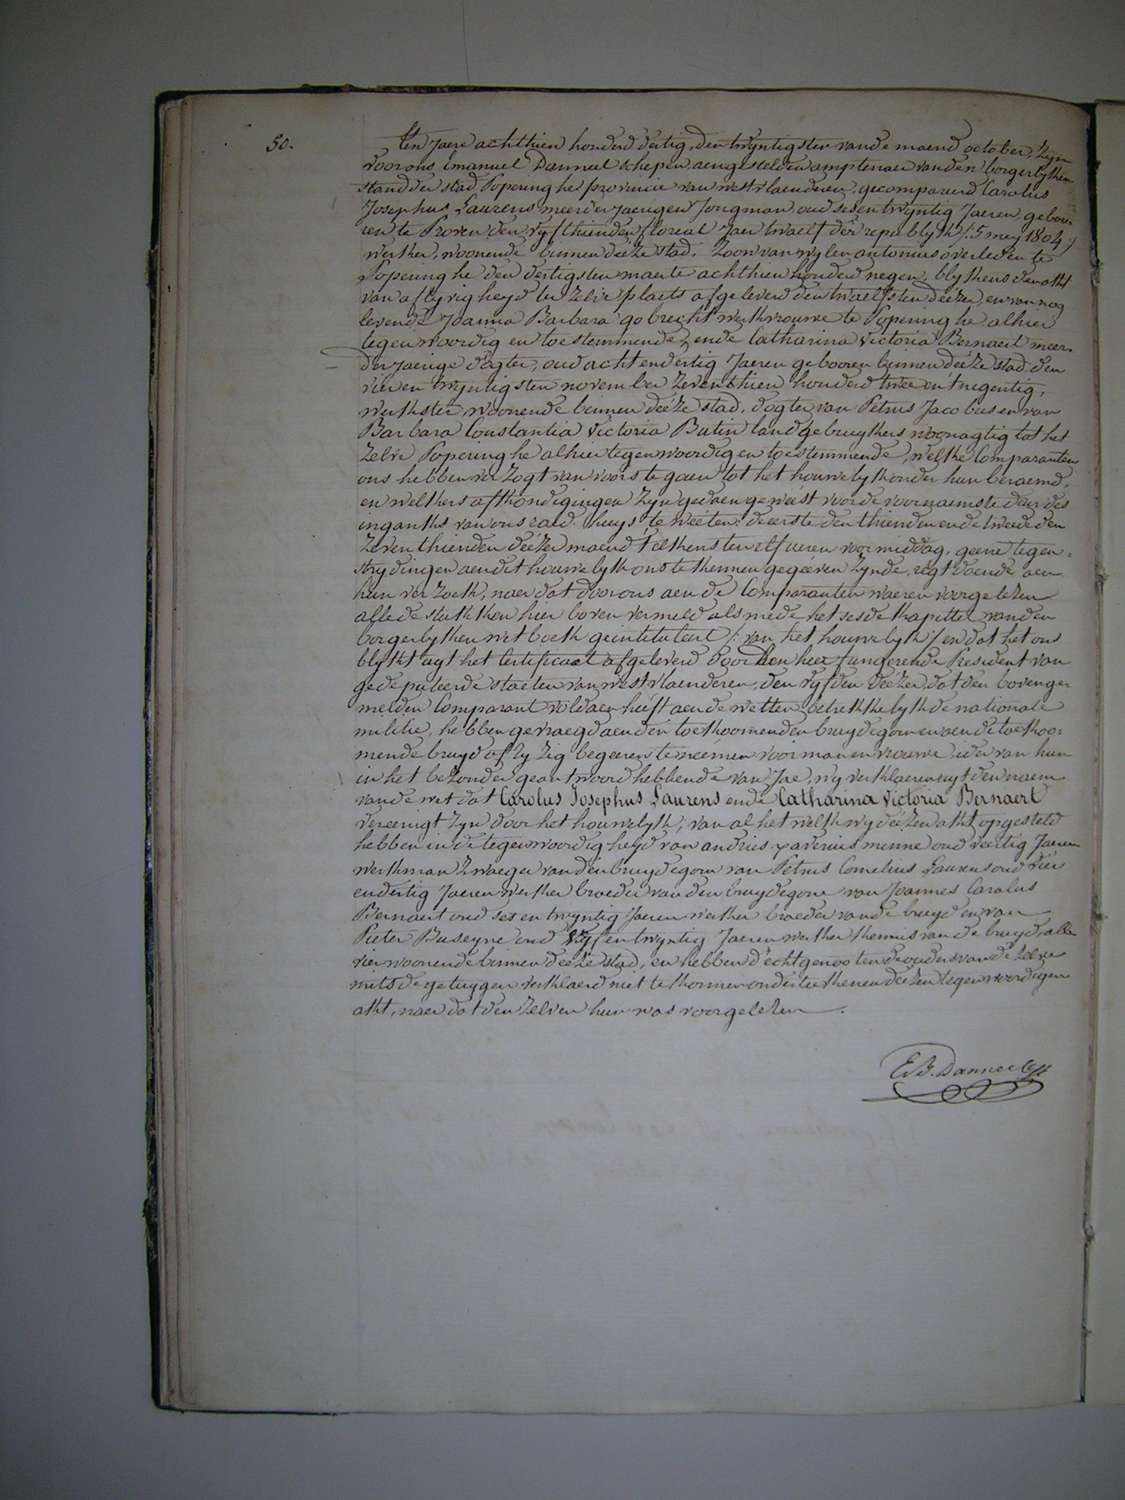 50.
Ten Jaere achthien honderd dertig, den twyntigsten van de maend october, Zyn
voor ons Emanuel Danneel schepen, aengestelden amptenaer van den borgerlyken
stand der stad Poperinghe provencie van westvlaenderen, gecompareerd Carolus
Josephus Laurens meerderjaerigen Jongman, oud sesentwyntig Jaeren, geboo-
ren te Proven den vyfthienden floreal Jaer twaelf der republyk /: 5 mey 1804 /
werker, woonende binnen deéze stad, Zoon van wylen antonius overleden te
Poperinghe den dertigsten maerte achthien honderd negen, blykens den akt
van aflyvigheyd ter Zelve plaets afgeleverd den twaelfsten deézer, en van nog
levende Joanna Barbara gobrecht werkvrouwe te Poperinghe alhier
tegenwoordig en toestemmende, ende Catharina Victoria Bernaert meer-
derjaerige dogter, oud acht en dertig Jaeren gebooren binnen deéze stad den
vier en twyntigsten november Zeventhien honderd twee en tnegentig,
werkster, woonende binnen deéze stad, dogter van Petrus Jacobus en van
Barbara Constantia Victoria Butin landgebruykers woonagtig tot het
Zelve Poperinghe alhier tegenwoordig en toestemmende, welke Comparanten
ons hebben verzogt van voorts te gaen tot het houwelyk onder hun beraemd,
en welkers afkondigingen Zyn gedaen geweést voor de voornaemste deur des
ingangs van ons raedhuys te weéten: de eerste den thienden ende tweede den
Zeventhienden deézer maend t'elkens ten elf ueren voormiddag, geene tegen-
strydingen aen dit houwelyk ons te kennen gegeéven Zynde, regt doende aen
hun verzoek, naer dat door ons aen de Comparanten waeren voorgelezen
alle de stukken hier boven vermeld als mede het sesde kapittel van den
borgerlyken wetboek geintituleert /: van het houwelyk / en dat het ons
blykt uyt het Certificaet afgeleverd door den heer fungerende President van
gedeputeerde staeten van westvlaenderen, den vyfden deézer, dat den bovenge-
melden Comparant voldaen heéft aen de wetten betrekkelyk de nationale
militie, hebben gevraegd aen den toekoomenden bruydegom en aen de toekoo-
mende bruyd of zy Zig begeeren te neémen voor man en vrouwe, ider van hun
in het bezonder geantwoord hebbende van Jae, wy verklaeren uyt den naem
van de wet dat Carolus Josephus Laurens ende Catharina Victoria Bernaert
vereenigt Zyn door het houwelyk, van al het welk wy deézen akt opgesteld
hebben in de tegenwoordigheyd van andries xaverius minne oud veertig Jaeren
werkman Zwaeger van den bruydegom van Petrus Cornelius Laurens oud vier
en dertig Jaeren werker broeder van den bruydegom van Joannes Carolus
Bernaert oud ses en twyntig Jaeren werker broeder van de bruyd en van
Pieter Buseyne oud vyf en twyntig Jaeren werker kennis van de bruyd, alle
vier woonende binnen deéze stad, en hebben d'echtgenooten de ouders van de Zelve
mits de getuygen verklaerd niet te konnen onderteekenen deézen tegenwoordigen
akt, naer dat den Zelven hun was voorgelezen.
E. B. Danneel